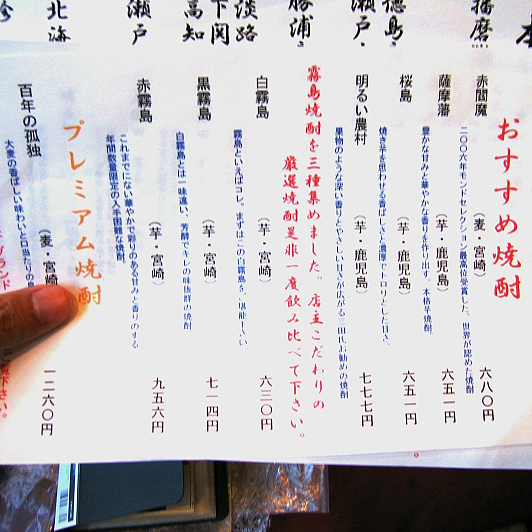 播磨
徳島、
瀬戸、
勝浦、
淡路
下関
高知
瀬戸
北海
おすすめ焼酎
赤閻魔
（麦・宮崎）
六八〇円
二〇〇六年モンドセレクション最高位受賞した、世界が認めた焼酎
薩摩藩
（芋・鹿児島）
六五一円
豊かな甘みと華やかな香りを作り出す、本格芋焼酎。
桜島
（芋・鹿児島）
六五一円
焼き芋を思わせる香ばしさと濃厚でトロリとした甘さ。
明るい農村
（芋・鹿児島）
七七七円
果物のような深い香りとやさしい甘さが広がる三田氏お勧めの焼酎
霧島焼酎を三種集めました。店主こだわりの
厳選焼酎是非一度飲み比べて下さい。
白霧島
（芋・宮崎）
六三〇円
霧島といえばコレ。まずはこの白霧島をご堪能下さい。
黒霧島
（芋・宮崎）
七一四円
白霧島とは一味違い、芳醇でキレの味抜群の焼酎
赤霧島
（芋・宮崎）
九五六円
これまでにない華やかで彩りのある甘みと香りのする
年間数量限定の入手困難な焼酎。
プレミアム焼酎
百年の孤独
（麦・宮崎
一二六〇円
大麦の香ばしい味わいと口当たりの